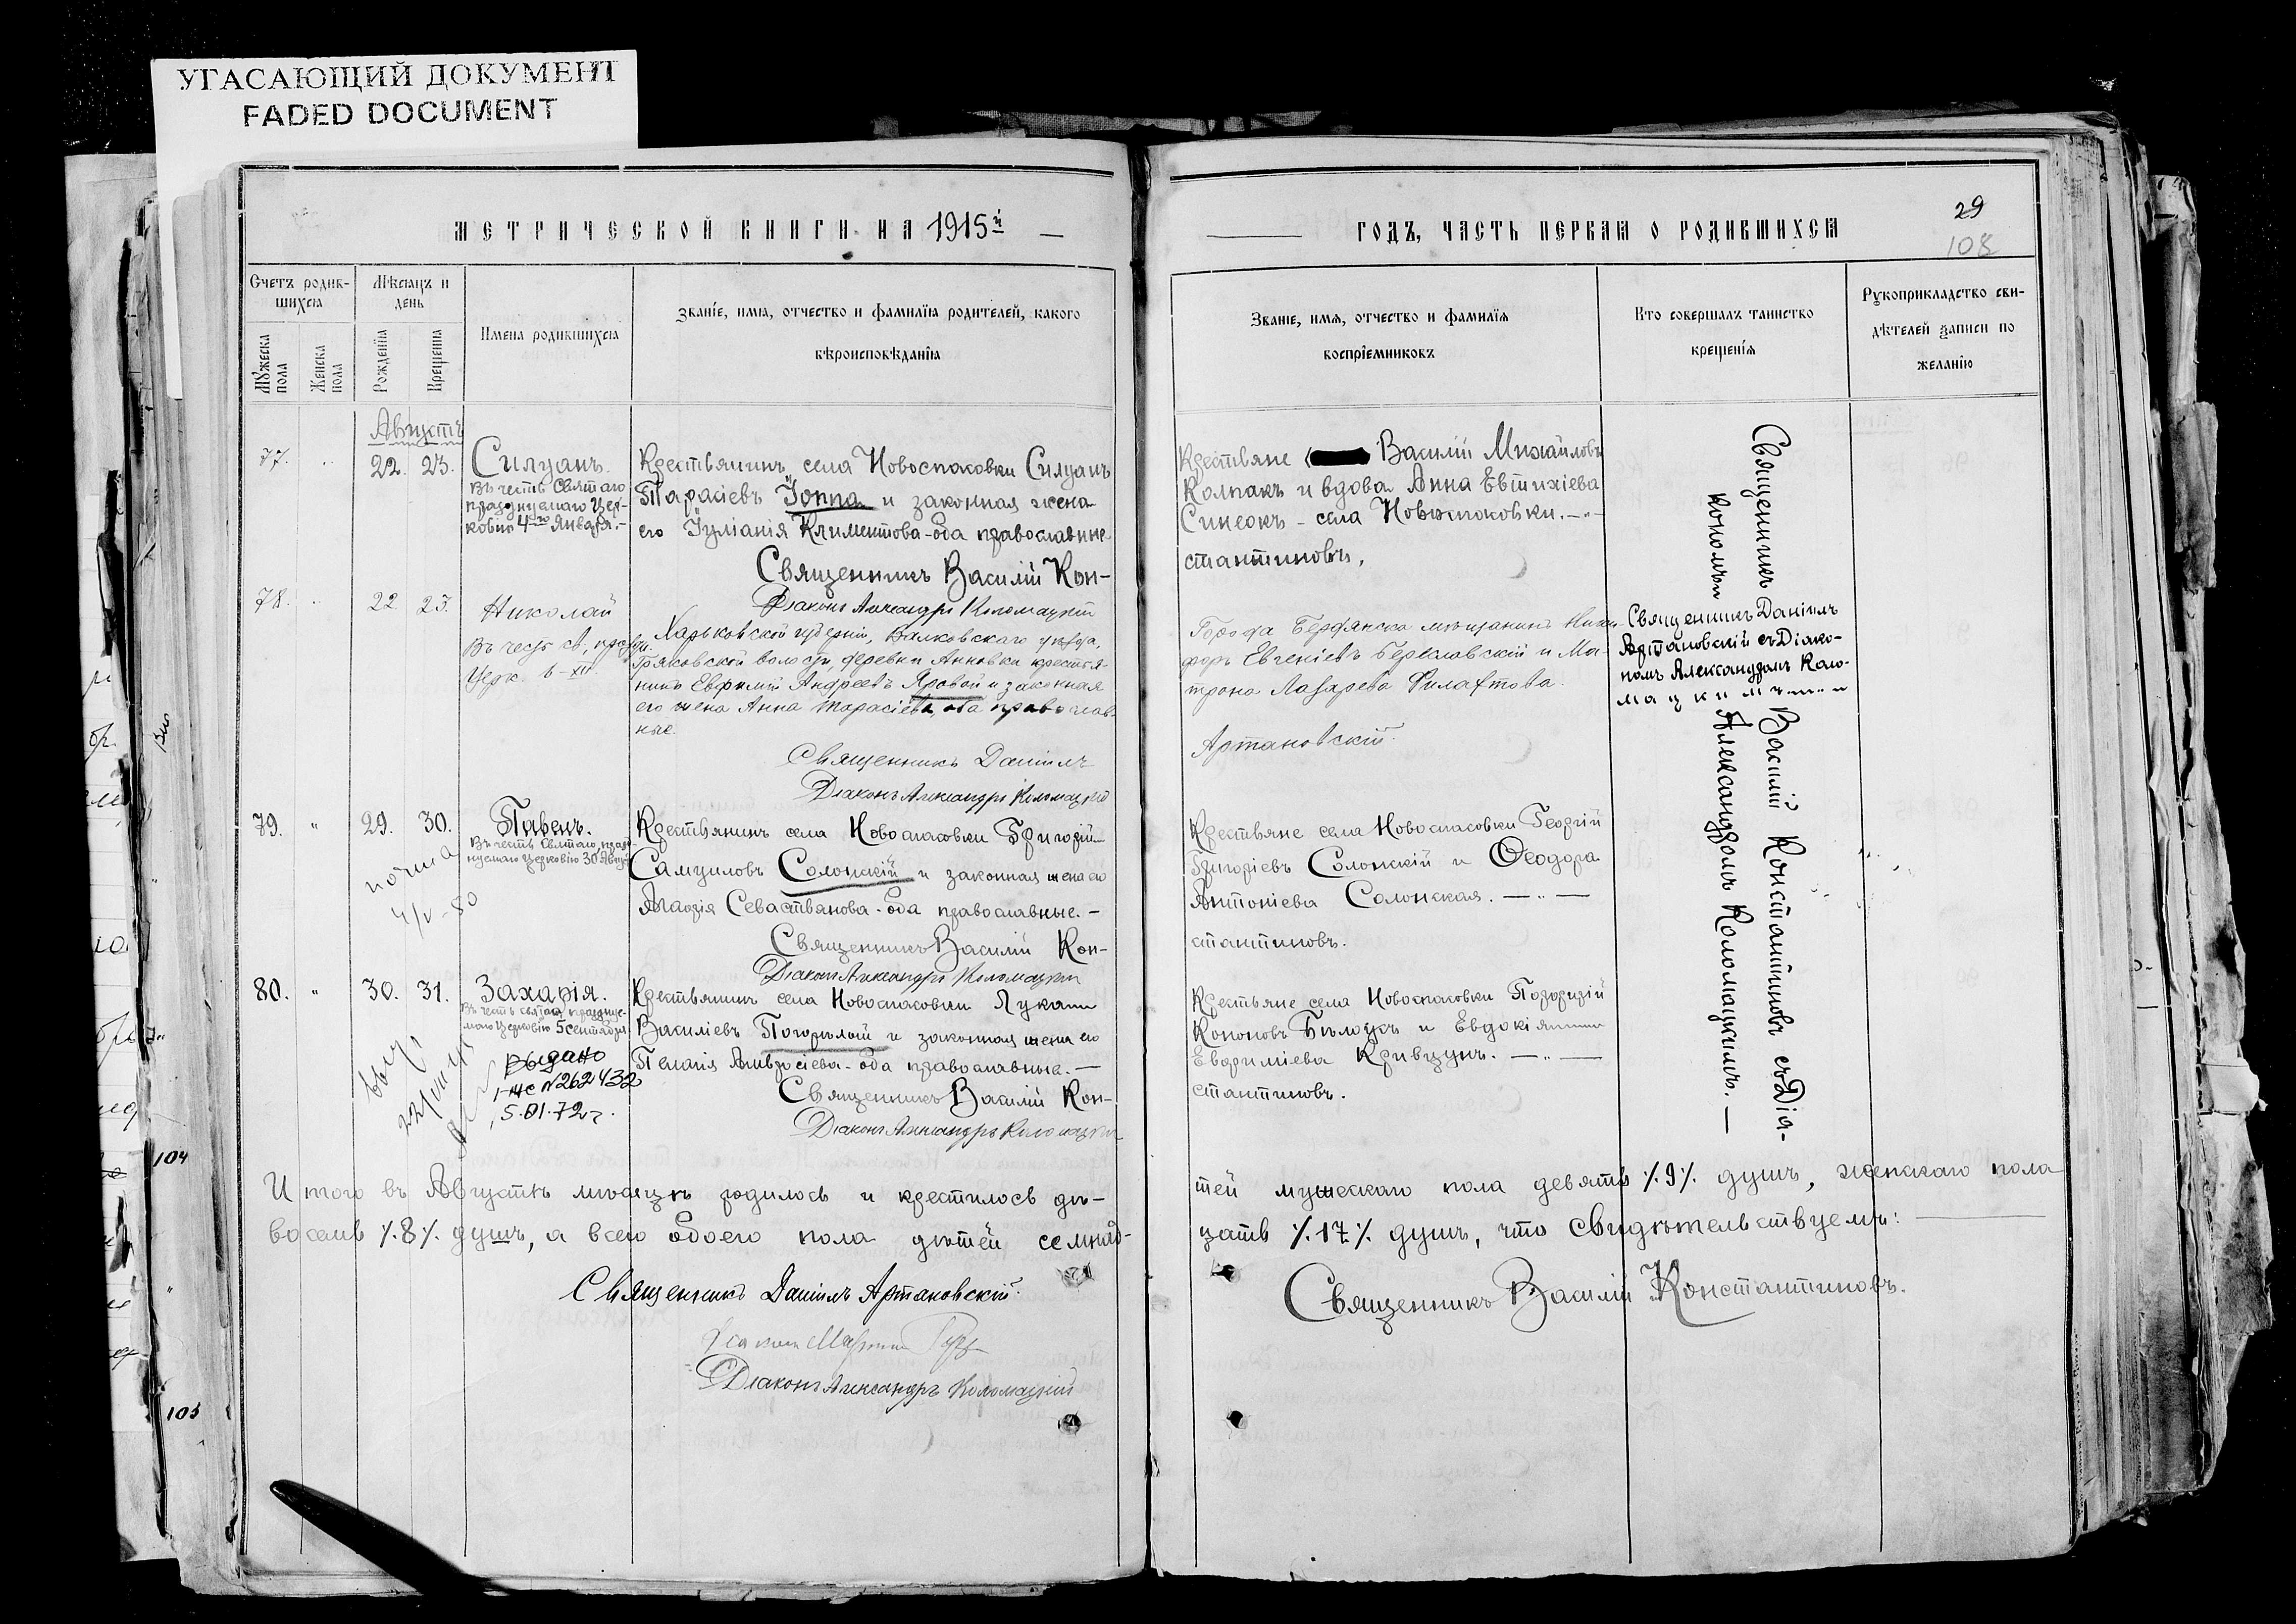 УГАСАЮЩИЙ ДОКУМЕНТ
FADED DOCUMENT
МЕТРИЧЕСКОЙ КНИГИ НА 1915й
Счетъ родив-
шихся
Мѣсяцъ и
день
Мужеска
пола
Женска
пола
Рожденія
Крещенія
Имена родившихся
Званіе, имя, отчество и фамилія родителей, какого
вѣроисповѣданія
Августъ
77. 22. 23. Силуанъ.
Въ честь Святаго
празднуемаго Цер-
ковію 4го Января.-
Крестьянинъ села Новоспасовки Силуанъ
Тарасіевъ Іоппа и законная жена
его Іуліанія Климентова-оба православные
Священникъ Василій Кон-
Діаконъ Александръ Коломацкій
78. 22 23. Николай
Въ честь св., праздн.
Церк. 6-XII.
Харьковской губерніи, Валковскаго уѣзда,
волости, деревни Анновки крестья-
нинъ Евфимій Андреевъ Яровой и законная
его жена Анна Тарасіева, оба православ-
ные.
Священникъ Даніилъ
Діаконъ Александръ Коломацкій
79. " 29. 30. Павелъ.
Въ честь Святаго, празд-
нуемаго Церковію 30 Авгус.
4/V-80
Крестьянинъ села Новоспасовки Григорій
Самуиловъ Солонскій и законная жена его
Севастьянова-оба православные.-
Священникъ Василій Кон-
Діаконъ Александръ Коломацкій
80. " 30. 31. Захарія.
Въ честь святаго праздну-
емаго Церковію 5 сентября
Выдано
I-ЖС №262432
5.01.72г.
Крестьянинъ села Новоспасовки Лука
Василіевъ Погорѣлый и законная жена его
Пелагія Амвросіева-оба православные.-
Священникъ Василій Кон-
Діаконъ Александръ Коломацкій
Итого въ Августѣ мѣсяцѣ родилось и крестилось дѣ-
восемь ٪8٪ душъ, а всего обоего пола дѣтей семнад-
Священникъ Даніилъ Артановскій.
Діаконъ Александръ Коломацкій
104
105
ГОДЪ, ЧАСТЬ ПЕРВАЯ О РОДИВШИХСЯ
29
108
Званіе, имя, отчество и фамилія
воспріемниковъ
Кто совершалъ таинство
крещенія
Рукоприкладство сви-
дѣтелей записи по
желанію
Крестьяне Василій Михайловъ
Колпакъ и вдова Анна Евтихіева
Синеокъ - села Новоспасовки.-"-
стантиновъ.
Города Бердянска мѣщанинъ Ники-
форъ Евгеніевъ Береславскій и Ма-
трона Лазарева Филатова.
Артановскій.
Крестьяне села Новоспасовки Георгій
Григоріевъ Солонскій и Ѳеодора
Антоніева Солонская. -"-
стантиновъ.
Крестьяне села Новоспасовки Порфирій
Кононовъ Бѣлоусъ и Евдокія
Евфиміева Кривцунъ. -"-
стантиновъ.
Священникъ Даніилъ
Артановскій съ Діако-
номъ Александромъ Коло-
мацкимъ
Священникъ Василій Константиновъ съ Діа-
кономъ Александромъ Коломацкимъ.-
тей мужескаго пола девять ٪9٪ душъ, женскаго пола
цать ٪17٪ душъ, что свидѣтельствуемъ:
Священникъ Василій Константиновъ.